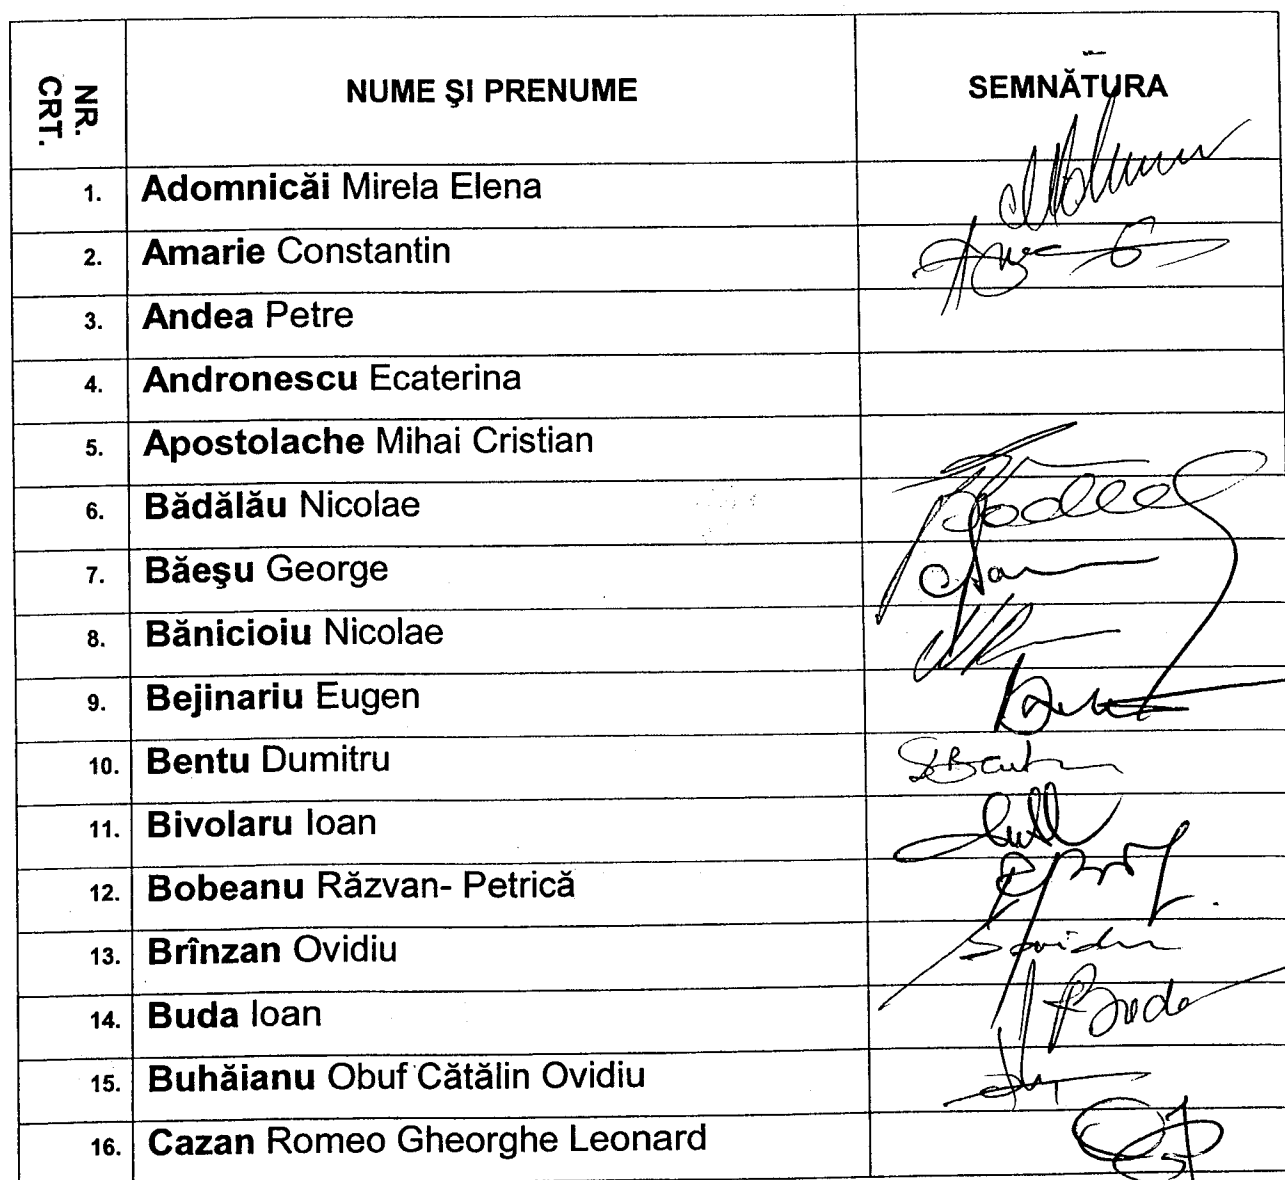 NR. CRT. NUME ŞI PRENUME SEMNĂTURA
1. Adomnicăi Mirela Elena
2. Amarie Constantin
3. Andea Petre
4. Andronescu Ecaterina
5. Apostolache Mihai Cristian
6. Bădălău Nicolae
7. Băeşu George
8. Bănicioiu Nicolae
9. Bejinariu Eugen
10. Bentu Dumitru
11. Bivolaru Ioan
12. Bobeanu Răzvan- Petrică
13. Brînzan Ovidiu
14. Buda Ioan
15. Buhăianu Obuf Cătălin Ovidiu
16. Cazan Romeo Gheorghe Leonard